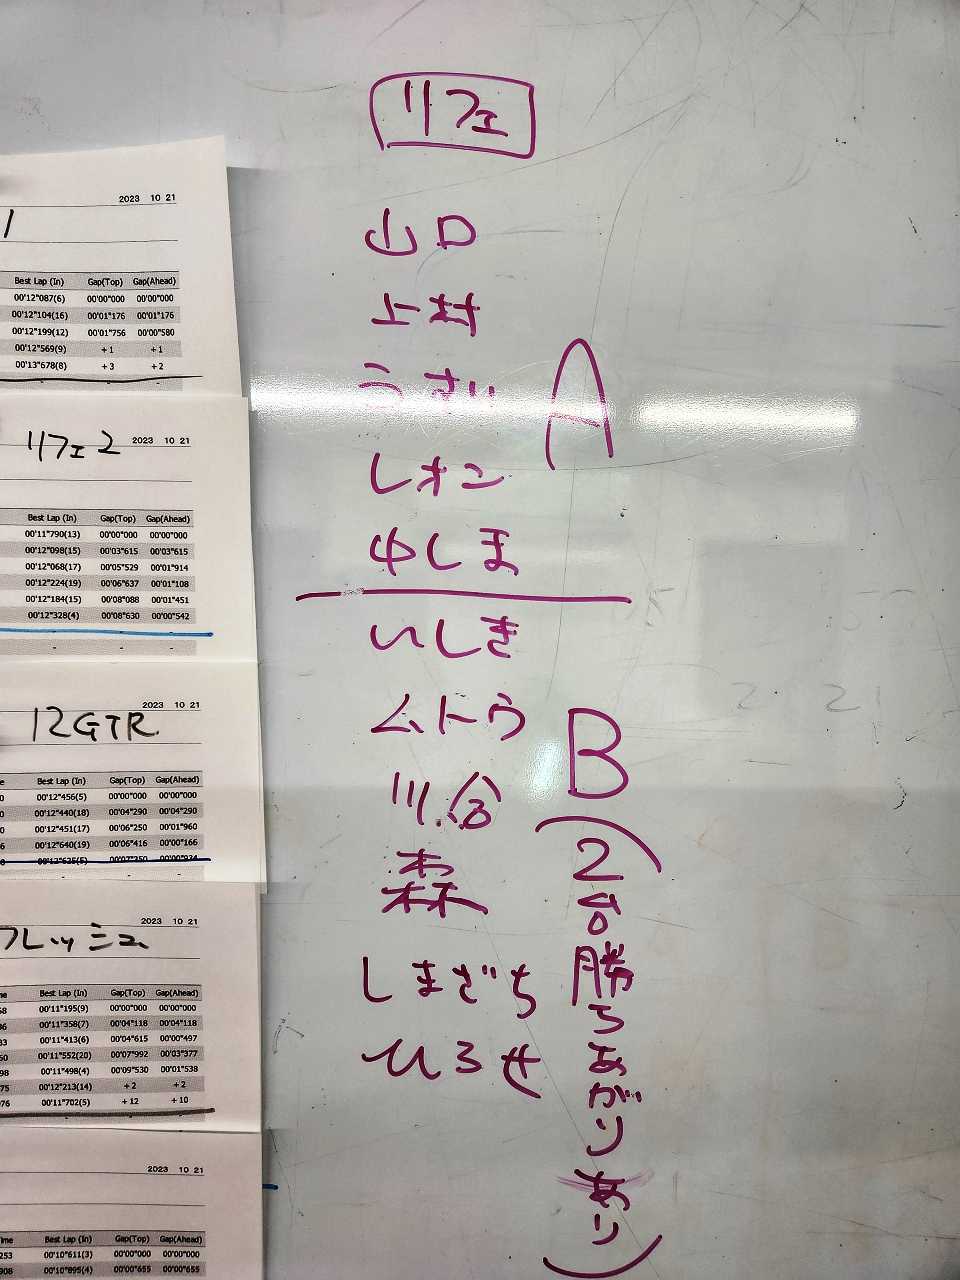 リフェ
山口
上村
うさい
レオン
中しま
A
いしき
ムトウ
川谷
森
しまざち
ひろせ
B
(2台勝ちあがりあり)
2023 10 21
1
Best Lap (In) Gap(Top) Gap(Ahead)
00'12"087(6) 00'00"000 00'00"000
00'12"104(16) 00'01"176 00'01"176
00'12"199(12) 00'01"756 00'00"580
00'12"569(9) +1 +1
00'13"678(8) +3 +2
- - -
リフェ2
2023 10 21
Best Lap (In) Gap(Top) Gap(Ahead)
00'11"790(13) 00'00"000 00'00"000
00'12"098(15) 00'03"615 00'03"615
00'12"068(17) 00'05"529 00'01"914
00'12"224(19) 00'06"637 00'01"108
00'12"184(15) 00'08"088 00'01"451
00'12"328(4) 00'08"630 00'00"542
- - -
2023 10 21
12GTR
e Best Lap (In) Gap(Top) Gap(Ahead)
0 00'12"456(5) 00'00"000 00'00"000
0 00'12"440(18) 00'04"290 00'04"290
0 00'12"451(17) 00'06"250 00'01"960
6 00'12"640(19) 00'06"416 00'00"166
8 00'12"625(5) 00'07"350 00'00"934
- - -
2023 10 21
フレッシュ
me Best Lap (In) Gap(Top) Gap(Ahead)
58 00'11"195(9) 00'00"000 00'00"000
36 00'11"358(7) 00'04"118 00'04"118
33 00'11"413(6) 00'04"615 00'00"497
50 00'11"552(20) 00'07"992 00'03"377
98 00'11"498(4) 00'09"530 00'01"538
75 00'12"213(14) +2 +2
76 00'11"702(5) +12 +10
- - -
2023 10 21
ime Best Lap (In) Gap(Top) Gap(Ahead)
253 00'10"611(3) 00'00"000 00'00"000
908 00'10"895(4) 00'00"655 00'00"655